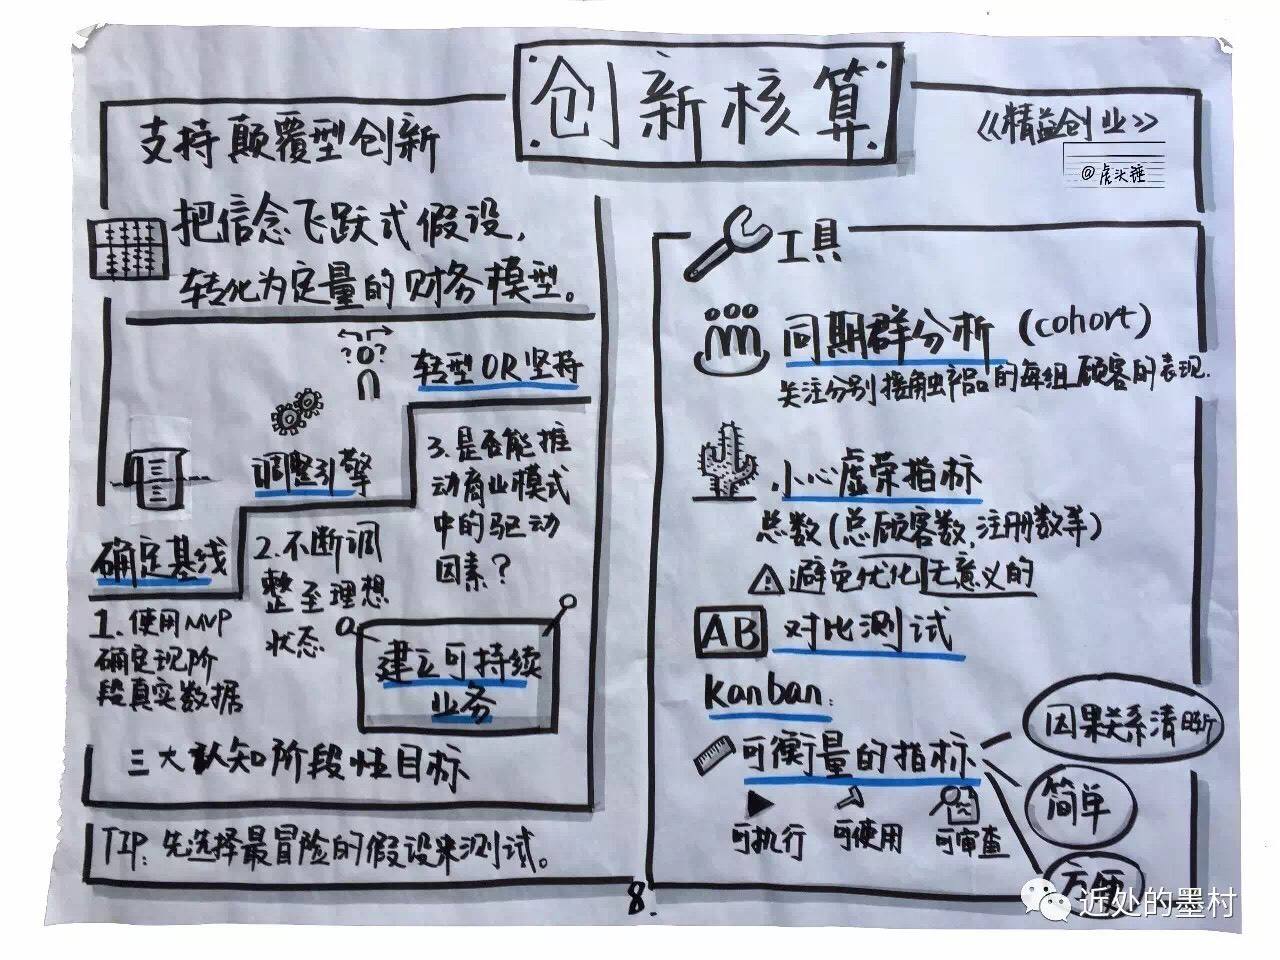 创新核算
《精益创业》
@虎头锤
支持颠覆型创新
把信念飞跃式假设,
转化为定量的财务模型。
? ?
转型OR坚持
调整引擎
确定基线
3.是否能推
动商业模式
中的驱动
因素?
2.不断调
整至理想
状态
1.使用MVP
确定现阶
段真实数据
建立可持续
业务
三大认知阶段性目标
TIP:先选择最冒险的假设来测试。
工具
同期群分析(cohort)
关注分别接触产品的每组顾客的表现.
小心虚荣指标
总数(总顾客数,注册数等)
避免优化无意义的
AB 对比测试
Kanban:
可衡量的指标
因果关系清晰
简单
方便
可执行 可使用 可审查
8.
近处的墨村